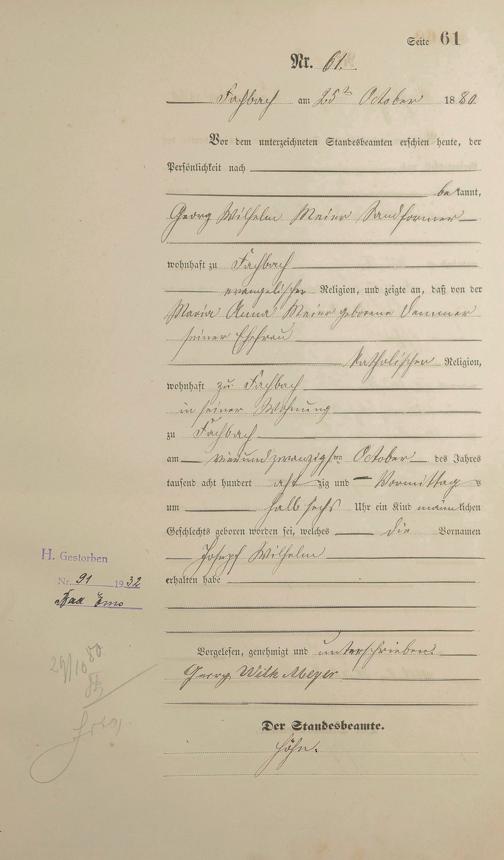 Seite 61
Nr. 61.
Fachbach am 25ᵗ October 1880
Vor dem unterzeichneten Standesbeamten erschien heute, der
Persönlichkeit nach
bekannt,
Georg Wilhelm Meier Sandformer
wohnhaft zu Fachbach
evangelischer Religion, und zeigte an, daß von der
Maria Anna Meier geborene Demmer
seiner Ehefrau
katholischer Religion,
wohnhaft zu Fachbach
in seiner Wohnung
zu Fachbach
am vierundzwanzigsten October des Jahres
tausend acht hundert achtzig und Vormittags
um halb sechs Uhr ein Kind männlichen
Geschlechts geboren worden sei, welches die Vornamen
Joseph Wilhelm
erhalten habe
H. Gestorben
Nr. 91 1932
Bad Ems
Vorgelesen, genehmigt und unterschrieben
Georg Wilh Meyer
Der Standesbeamte.
Höhn.